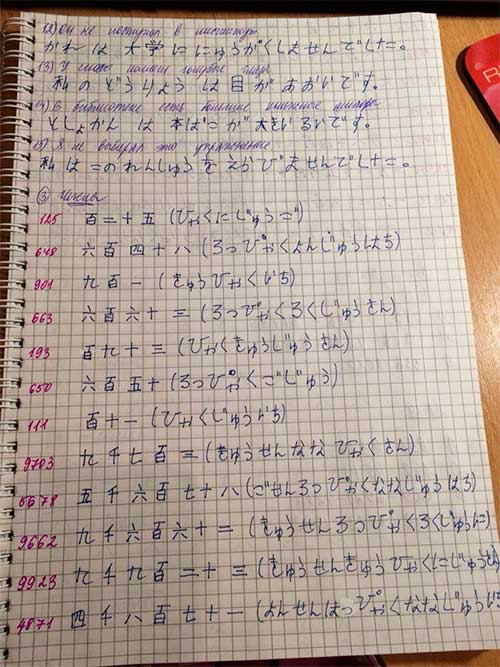 12) Он не поступал в институт
かれは 大学に にゅうがくしませんでした。
13) У голубые глаза
私の どうりょうは 目が あおいです。
14) В библиотеке есть большие книжные
としょかんは 本ばこが 大きい です。
15) Я не выбирал это упражнение
私は この れんしゅうを えらびませんでした。
③ Числы
125 百二十五 (ひゃくにじゅうご)
648 六百四十八 (ろっぴゃくよんじゅうはち)
901 九百一 (きゅうひゃくいち)
663 六百六十三 (ろっぴゃくろくじゅうさん)
193 百九十三 (ひゃくきゅうじゅうさん)
650 六百五十 (ろっぴゃくごじゅう)
111 百十一 (ひゃくじゅういち)
9703 九千七百三 (きゅうせんななひゃくさん)
5678 五千六百七十八 (ごせんろっぴゃくななじゅうはち)
9662 九千六百六十二 (きゅうせんろっぴゃくろくじゅうに)
9923 九千九百二十三 (きゅうせんきゅうひゃくにじゅう
4871 四千八百七十一 (よんせんはっぴゃくななじゅう